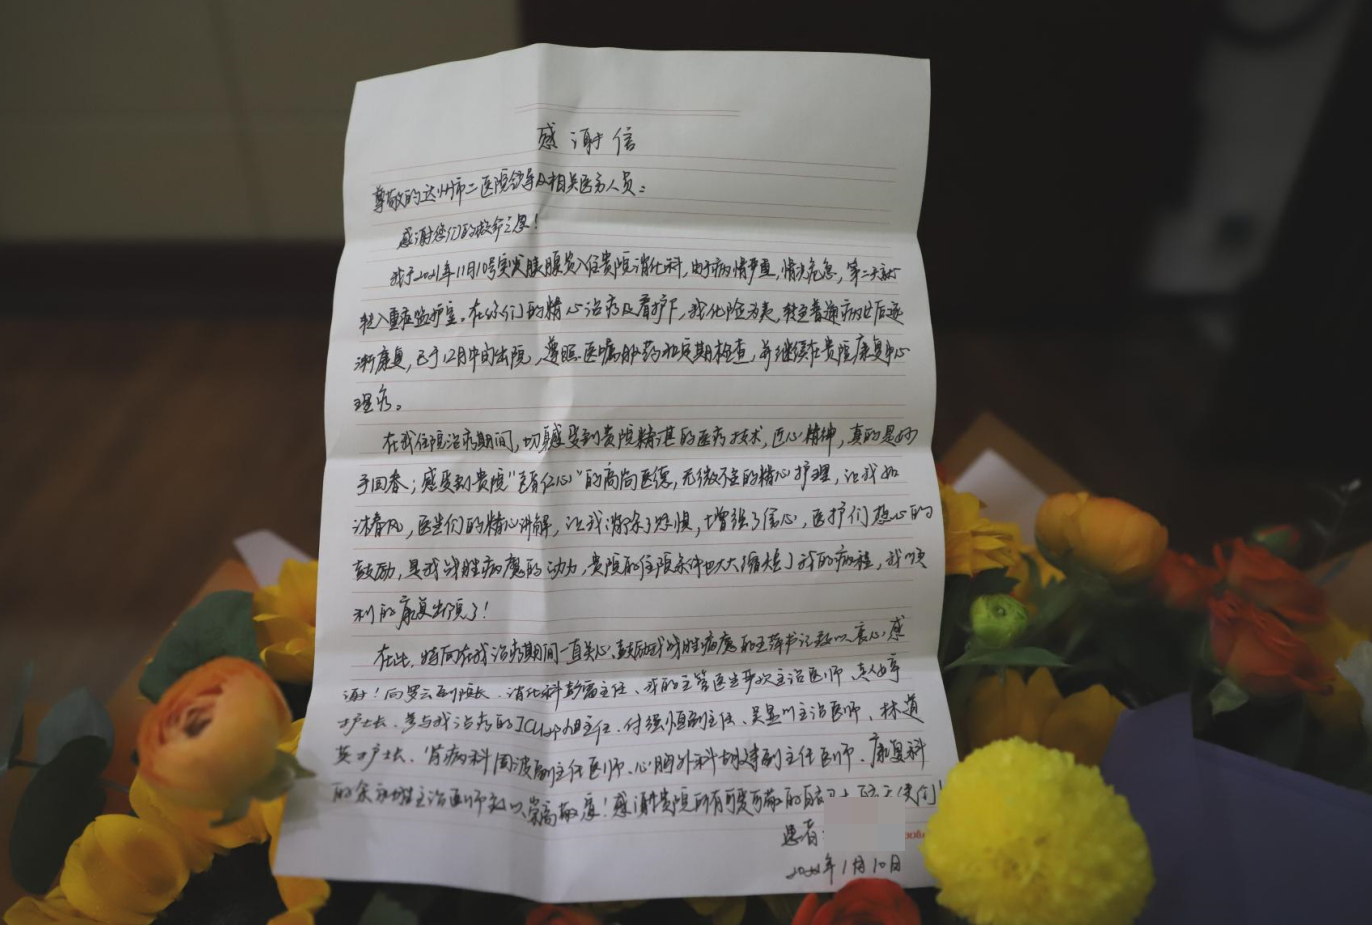 感谢信
尊敬的达州市二医院领导及相关医务人员:
感谢您们的救命之恩!
我于2021年11月10号突发胰腺炎入住贵院消化科,由于病情严重,情况危急,第二天就
转入重症监护室。在你们的精心治疗及看护下,我化险为夷,转至普通病房后逐
渐康复,已于12月中旬出院,遵照医嘱服药和定期检查,并继续在贵院康复中心
理疗。
在我住院治疗期间,切身感受到贵院精湛的医疗技术,匠心精神,真的是妙
手回春;感受到贵院“医者仁心”的高尚医德,无微不至的精心护理,让我如
沐春风,医生们的精心讲解,让我消除了恐惧,增强了信心,医护们热心的
鼓励,是我战胜病魔的动力,贵院的住院条件也大大缩短了我的病程,我顺
利的康复出院了!
在此,特向在我治疗期间一直关心、鼓励我战胜病魔的王萍书记致以衷心感
谢!向罗云副院长、消化科彭雷主任、我的主管医生 主治医师、
护士长、参与我治疗的ICU 主任、付强恒副主任、吴显川主治医师、林道
英护士长、肾病科周波副主任医师、心胸外科胡 副主任医师、康复科
的余 主治医师致以崇高敬意!感谢贵院所有可爱可敬的白衣天使们!
患者:
2022年1月10日